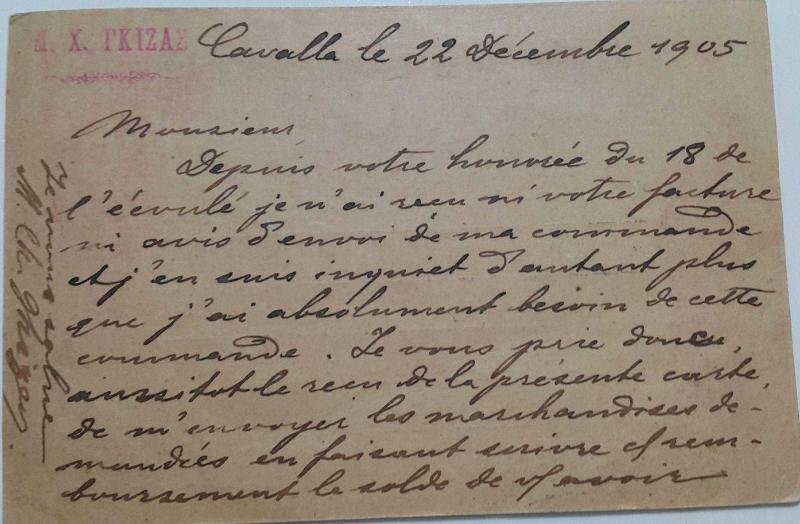 Μ. Χ. ΓΚΙΖΑΣ
Cavalla le 22 Décembre 1905
Monsieur
Depuis votre honorée du 18 de
l'écoulé je n'ai recu ni votre facture
ni avis d'envoi de ma commande
et j'en suis inquiet d'autant plus
que j'ai absolument besoin de cette
commande. Je vous prie donc,
aussitot le recu de la présente carte,
de m'envoyer les marchandises de-
mandées en faisant suivre ct rem-
boursement le solde de v/ avoir
Je vous salue
M. Ch. Ghizas